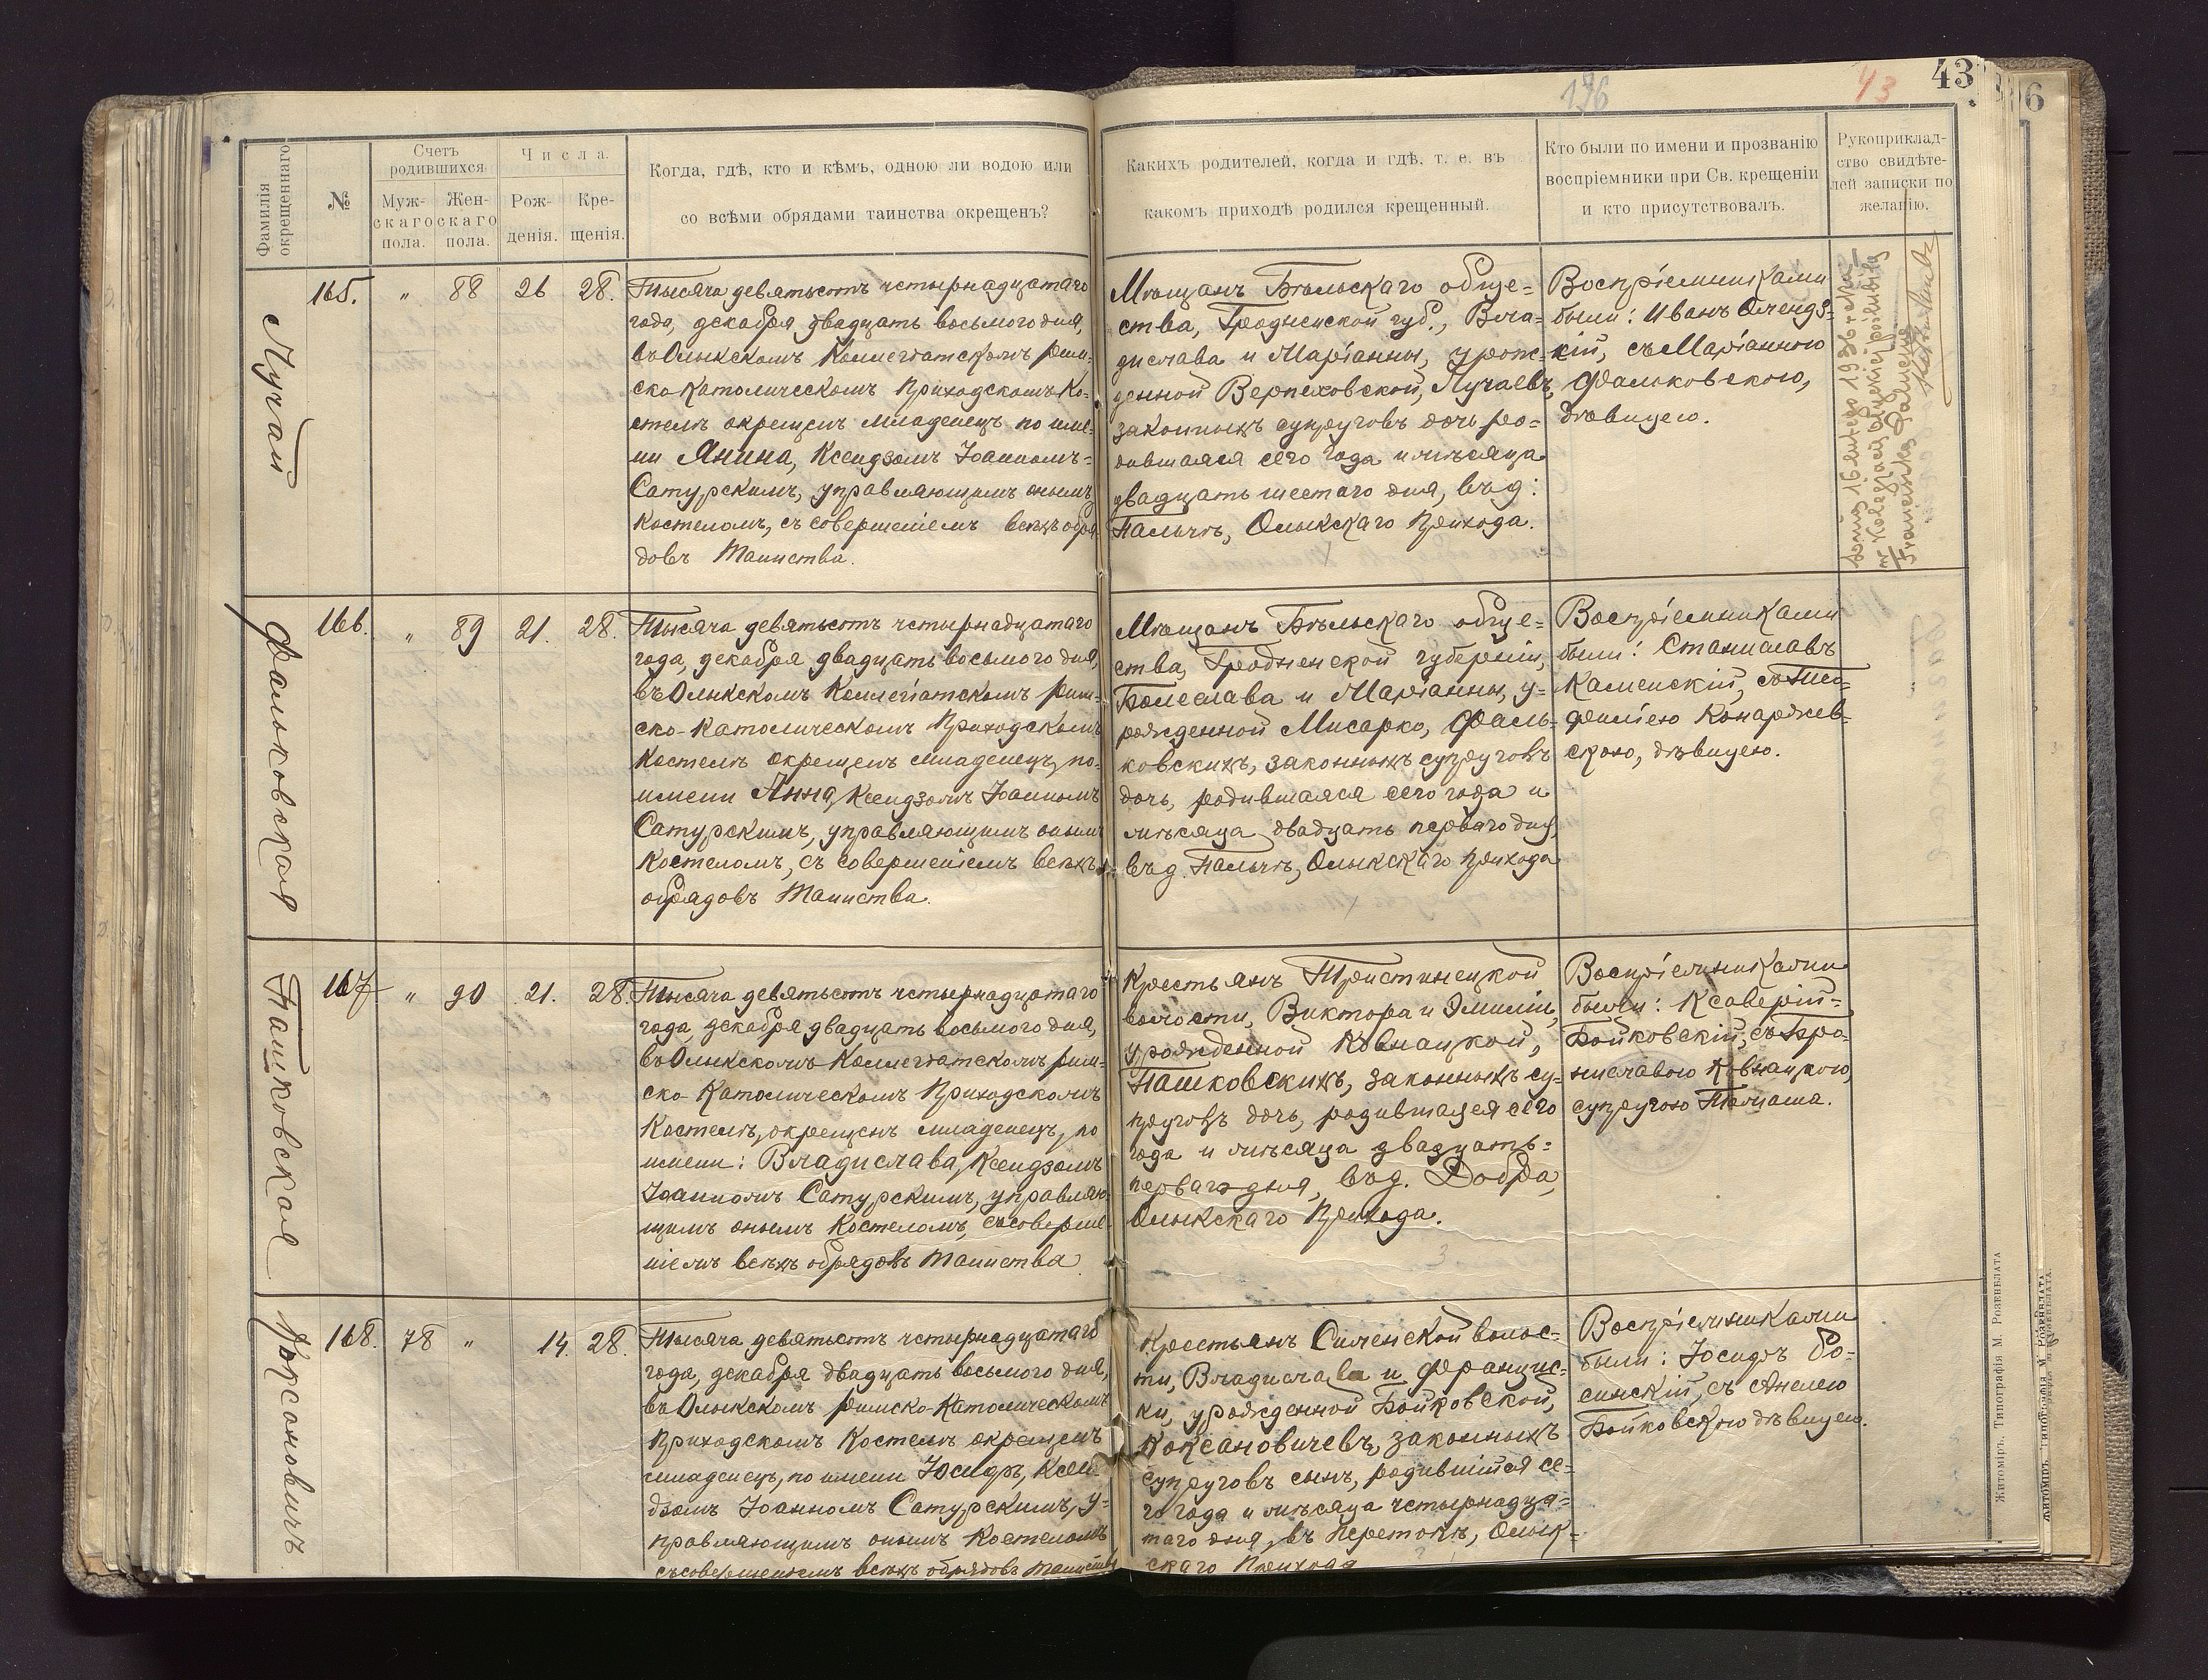 176
43
43
6
Фамилія окрещеннаго
№
Счетъ родившихся
Мужскаго пола.
Женскаго пола.
Числа.
Рожденія.
Крещенія.
Когда, гдѣ, кто и кѣмъ, одною ли водою или
со всѣми обрядами таинства окрещенъ?
Какихъ родителей, когда и гдѣ, т. е. въ
какомъ приходѣ родился крещенный.
Кто были по имени и прозванію
воспріемники при Св. крещеніи
и кто присутствовалъ.
Рукоприклад-
ство свидѣте-
лей записки по
желанію.
Лучай
165. " 88 26 28.
Тысяча девятьсотъ четырнадцатаго
года, декабря двадцать восьмого дня,
въ Олыкскомъ Коллегіатскомъ рим-
ско-Католическомъ Приходскомъ Ко-
стелѣ окрещенъ младенецъ по име-
ни Янина, Ксендзомъ Іоанномъ-
Сатурскимъ, управляющимъ онымъ
Костеломъ, съ совершеніемъ всѣхъ обря
довъ Таинства.
Мѣщанъ Бѣльскаго обще-
ства, Гродненской губ., Вла-
дислава и Маріанны, урож-
денной Верпеховской, Лучаевъ,
законныхъ супруговъ дочь ро-
дившаяся сего года и мѣсяца
двадцать шестаго дня, въ д:
Пальчѣ, Олыкскаго Прихода.
Воспріемниками
были: Иванъ Оленд-
кій, съ Маріанною
Фальковскою,
дѣвицею.
Dnia 16 lutego 1936 roku
w Kolegjacie Ołyckiej poślubiła
Franciszka
Фальковская
166. " 89 21. 28.
Тысяча девятьсотъ четырнадцатаго
года, декабря двадцать восьмого дня,
въ Олыкскомъ Коллегіатскомъ рим-
ско-Католическомъ Приходскомъ
Костелѣ окрещенъ младенецъ, по-
имени Анна, Ксендзомъ Іоанномъ
Сатурскимъ, управляющимъ онымъ
Костеломъ, съ совершеніемъ всѣхъ
обрядовъ Таинства.
Мѣщанъ Бѣльскаго обще-
ства, Гродненской губерніи,
Болеслава и Маріанны, у-
рожденной Мисарко, Фаль-
ковскихъ, законныхъ супруговъ
дочь, родившаяся сего года и
мѣсяца двадцать перваго дня,
въ д. Пальчѣ, Олыкскаго Прихода
Воспріемниками
были: Станиславъ
Каменскій, съ Тео-
филіею Конаржев-
скою, дѣвицею.
Пашковская
167 " 90 21. 28.
Тысяча девятьсотъ четырнадцатаго
года, декабря двадцать восьмого дня,
въ Олыкскомъ Коллегіатскомъ рим-
ско-Католическомъ Приходскомъ
Костелѣ, окрещенъ младенецъ, по
имени: Владислава, Ксендзомъ
Іоанномъ Сатурскимъ, управляю-
щимъ онымъ Костеломъ, съ соверше-
ніемъ всѣхъ обрядовъ Таинства
Крестьянъ Тристинецкой
волости, Виктора и Эмиліи,
урожденной Ковнацкой,
Пашковскихъ, законныхъ су-
пруговъ дочь, родившаяся сего
года и мѣсяца двадцать-
перваго дня, въ д. Добра,
Олыкскаго Прихода.
Воспріемниками
были: Ксаверій-
Бойковскій, съ Бро-
ниславою Ковнацкою,
супругою Томаша.
Коксановичъ
168. 78 " 14. 28.
Тысяча девятьсотъ четырнадцатаго
года, декабря двадцать восьмого дня,
въ Олыкскомъ римско-Католическомъ
Приходскомъ Костелѣ окрещенъ
младенецъ, по имени Іосифъ, Ксен-
дзомъ Іоанномъ Сатурскимъ, у-
правляющимъ онымъ Костеломъ
съ совершеніемъ всѣхъ обрядовъ Таинства
Крестьянъ Силенской волос-
ти, Владислава и Францис-
ки, урожденной Бойковской,
Коксановичевъ, законныхъ
супруговъ сынъ, родившійся се-
го года и мѣсяца четырнадца-
таго дня, въ Перетокѣ, Олык-
скаго Прихода
Воспріемниками
были: Іосифъ Бо-
синскій, съ Анелею
Бойковскою дѣвицею.
Житоміръ. Типографія М. Розенблата